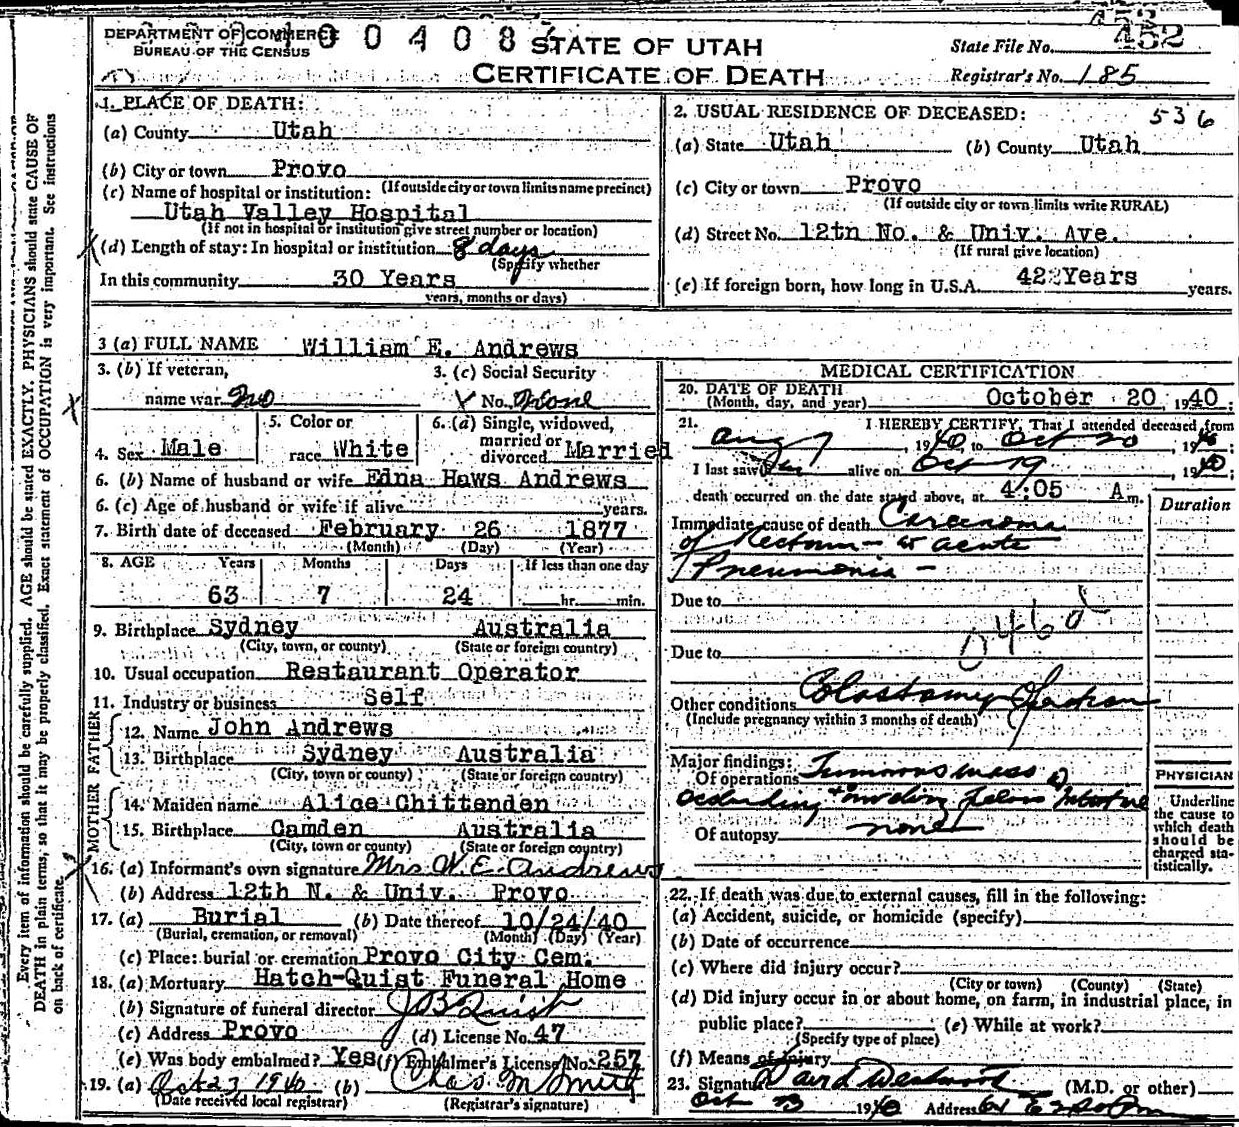 DEPARTMENT OF COMMERCE
BUREAU OF THE CENSUS
STATE OF UTAH
CERTIFICATE OF DEATH
State File No. 452
Registrar's No. 185
1. PLACE OF DEATH:
(a) County Utah
(b) City or town Provo
(If outside city or town limits name precinct)
(c) Name of hospital or institution:
Utah Valley Hospital
(If not in hospital or institution give street number or location)
(d) Length of stay: In hospital or institution 8 days
(Specify whether
In this community 30 Years
years, months or days)
2. USUAL RESIDENCE OF DECEASED: 536
(a) State Utah (b) County Utah
(c) City or town Provo
(If outside city or town limits write RURAL)
(d) Street No. 12tn No. & Univ. Ave.
(If rural give location)
(e) If foreign born, how long in U.S.A. 42 Years years.
3 (a) FULL NAME William E. Andrews
3. (b) If veteran, name war no
3. (c) Social Security No. None
4. Sex Male
5. Color or race White
6. (a) Single, widowed, married or divorced Married
6. (b) Name of husband or wife Edna Haws Andrews
6. (c) Age of husband or wife if alive years.
7. Birth date of deceased February 26 1877
(Month) (Day) (Year)
8. AGE Years Months Days If less than one day
63 7 24 hr. min.
9. Birthplace Sydney Australia
(City, town, or county) (State or foreign country)
10. Usual occupation Restaurant Operator
11. Industry or business Self
FATHER
12. Name John Andrews
13. Birthplace Sydney Australia
(City, town or county) (State or foreign country)
MOTHER
14. Maiden name Alice Chittenden
15. Birthplace Camden Australia
(City, town or county) (State or foreign country)
16. (a) Informant's own signature Mrs W. E. Andrews
(b) Address 12th N. & Univ. Provo
17. (a) Burial (b) Date thereof 10/24/40
(Burial, cremation, or removal) (Month) (Day) (Year)
(c) Place: burial or cremation Provo City Cem.
18. (a) Mortuary Hatch-Quist Funeral Home
(b) Signature of funeral director J B Quist
(c) Address Provo (d) License No. 47
(e) Was body embalmed? Yes (f) Embalmer's License No. 257
19. (a) Oct 23 1940 (b) Chas M Smith
(Date received local registrar) (Registrar's signature)
MEDICAL CERTIFICATION
20. DATE OF DEATH October 20, 1940
(Month, day, and year)
21. I HEREBY CERTIFY, That I attended deceased from
Aug 7, 1940, to Oct 20, 1940
I last saw alive on Oct 19 1940
death occurred on the date stated above, at 4:05 A m.
Duration
Immediate cause of death Carcenoma
of Rectum - acute
Pneumonia -
Due to
0460
Due to
Other conditions Colostomy
(Include pregnancy within 3 months of death)
Major findings:
Of operations Tumorous mass
occluding
Of autopsy none
PHYSICIAN
Underline
the cause to
which death
should be
charged sta-
tistically.
22. If death was due to external causes, fill in the following:
(a) Accident, suicide, or homicide (specify)
(b) Date of occurrence
(c) Where did injury occur?
(City or town) (County) (State)
(d) Did injury occur in or about home, on farm, in industrial place, in
public place? (e) While at work?
(Specify type of place)
(f) Means of injury
23. Signature David Westwood (M.D. or other)
Oct 23 1940 Address
Every item of information should be carefully supplied. AGE should be stated EXACTLY. PHYSICIANS should state CAUSE OF
DEATH in plain terms, so that it may be properly classified. Exact statement of OCCUPATION is very important. See instructions
on back of certificate.